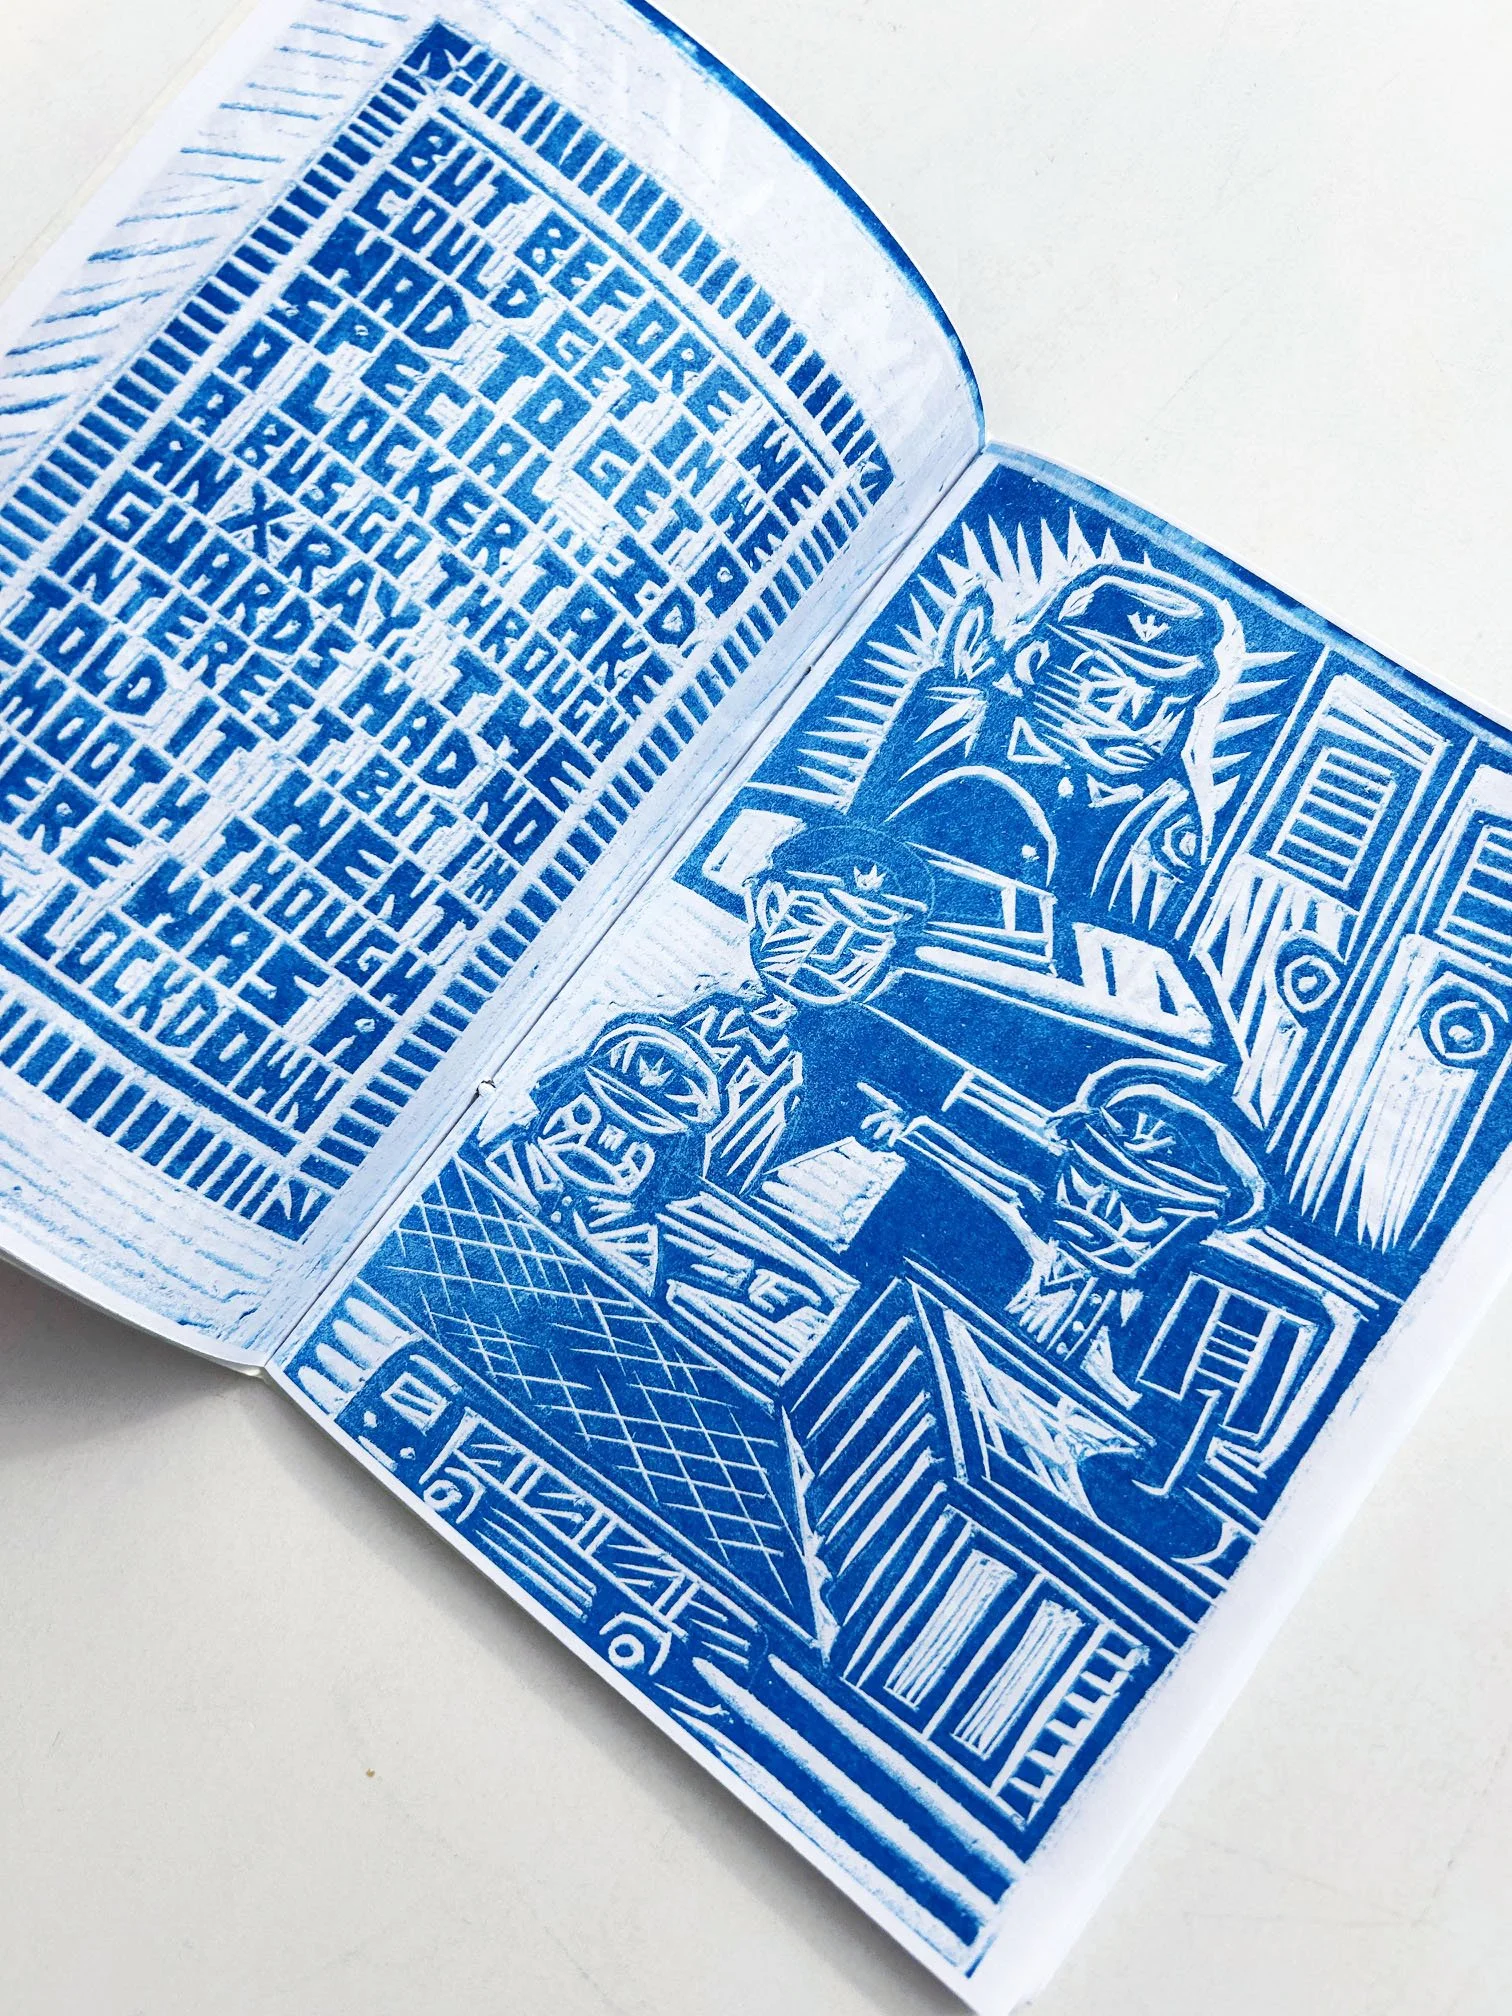 BUT BEFORE WE
COULD GET IN WE
HAD TO GET A
SPECIAL "ID
A LOCKER TAKE
A BUS GO THROUGH
AN X RAY, THE
GUARDS HAD NO
INTEREST BUT IN
TOLD IT WENT
MOOTH THOUGH
HERE WAS A
LOCKDOWN